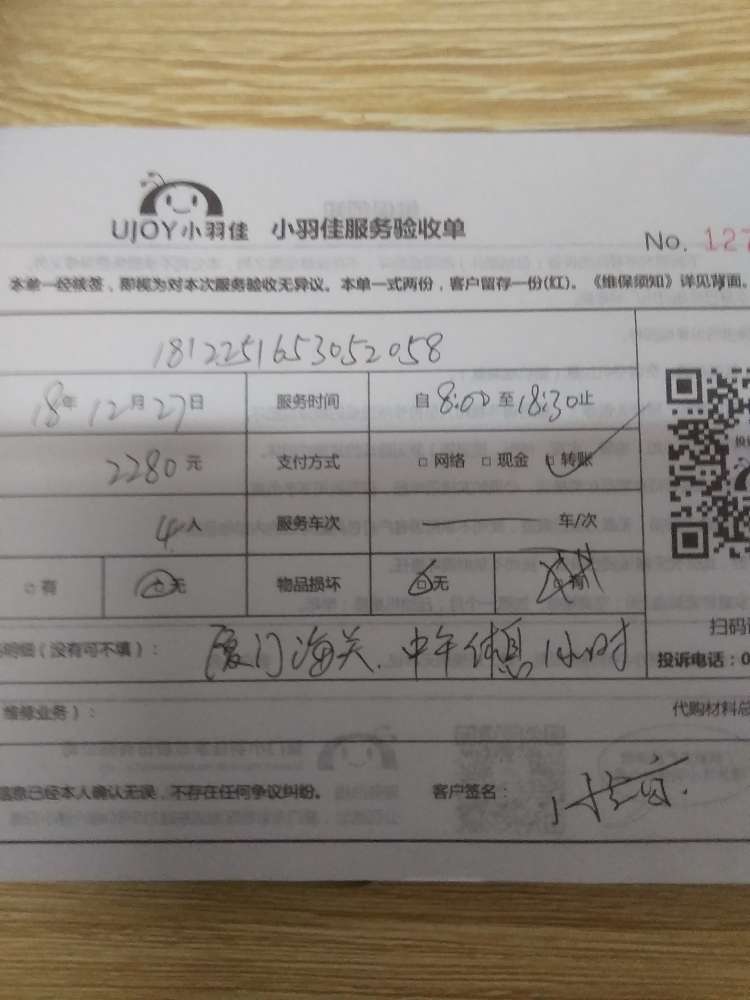 UJOY小羽佳 小羽佳服务验收单
No. 127
本单一经核签，即视为对本次服务验收无异议。本单一式两份，客户留存一份(红)。《维保须知》详见背面。
1812251653052058
18年12月27日 服务时间 自8:00至18:30止
2280元 支付方式 □网络 □现金 □转账
4人 服务车次 —— 车/次
□有 □无 物品损坏 □无 □有
明细（没有可不填）： 厦门海关.中午休息1小时
扫码
投诉电话：0
维修业务）： 代购材料总
信息已经本人确认无误，不存在任何争议纠纷。 客户签名：